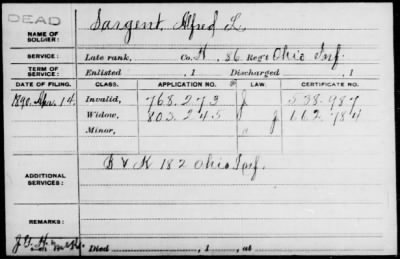 DEAD
NAME OF SOLDIER: Sargent, Alfred L.
SERVICE: Late rank, Co. H, 86 Reg't Ohio Inf.
TERM OF SERVICE: Enlisted , 1 Discharged , 1
DATE OF FILING. CLASS. APPLICATION NO. LAW. CERTIFICATE NO.
1890, Apr. 14 Invalid, 768.273 j 538.987
Widow, 803.245 j
Minor,
ADDITIONAL SERVICES: B & K 182 Ohio Inf.
REMARKS:
Died , 1 , at